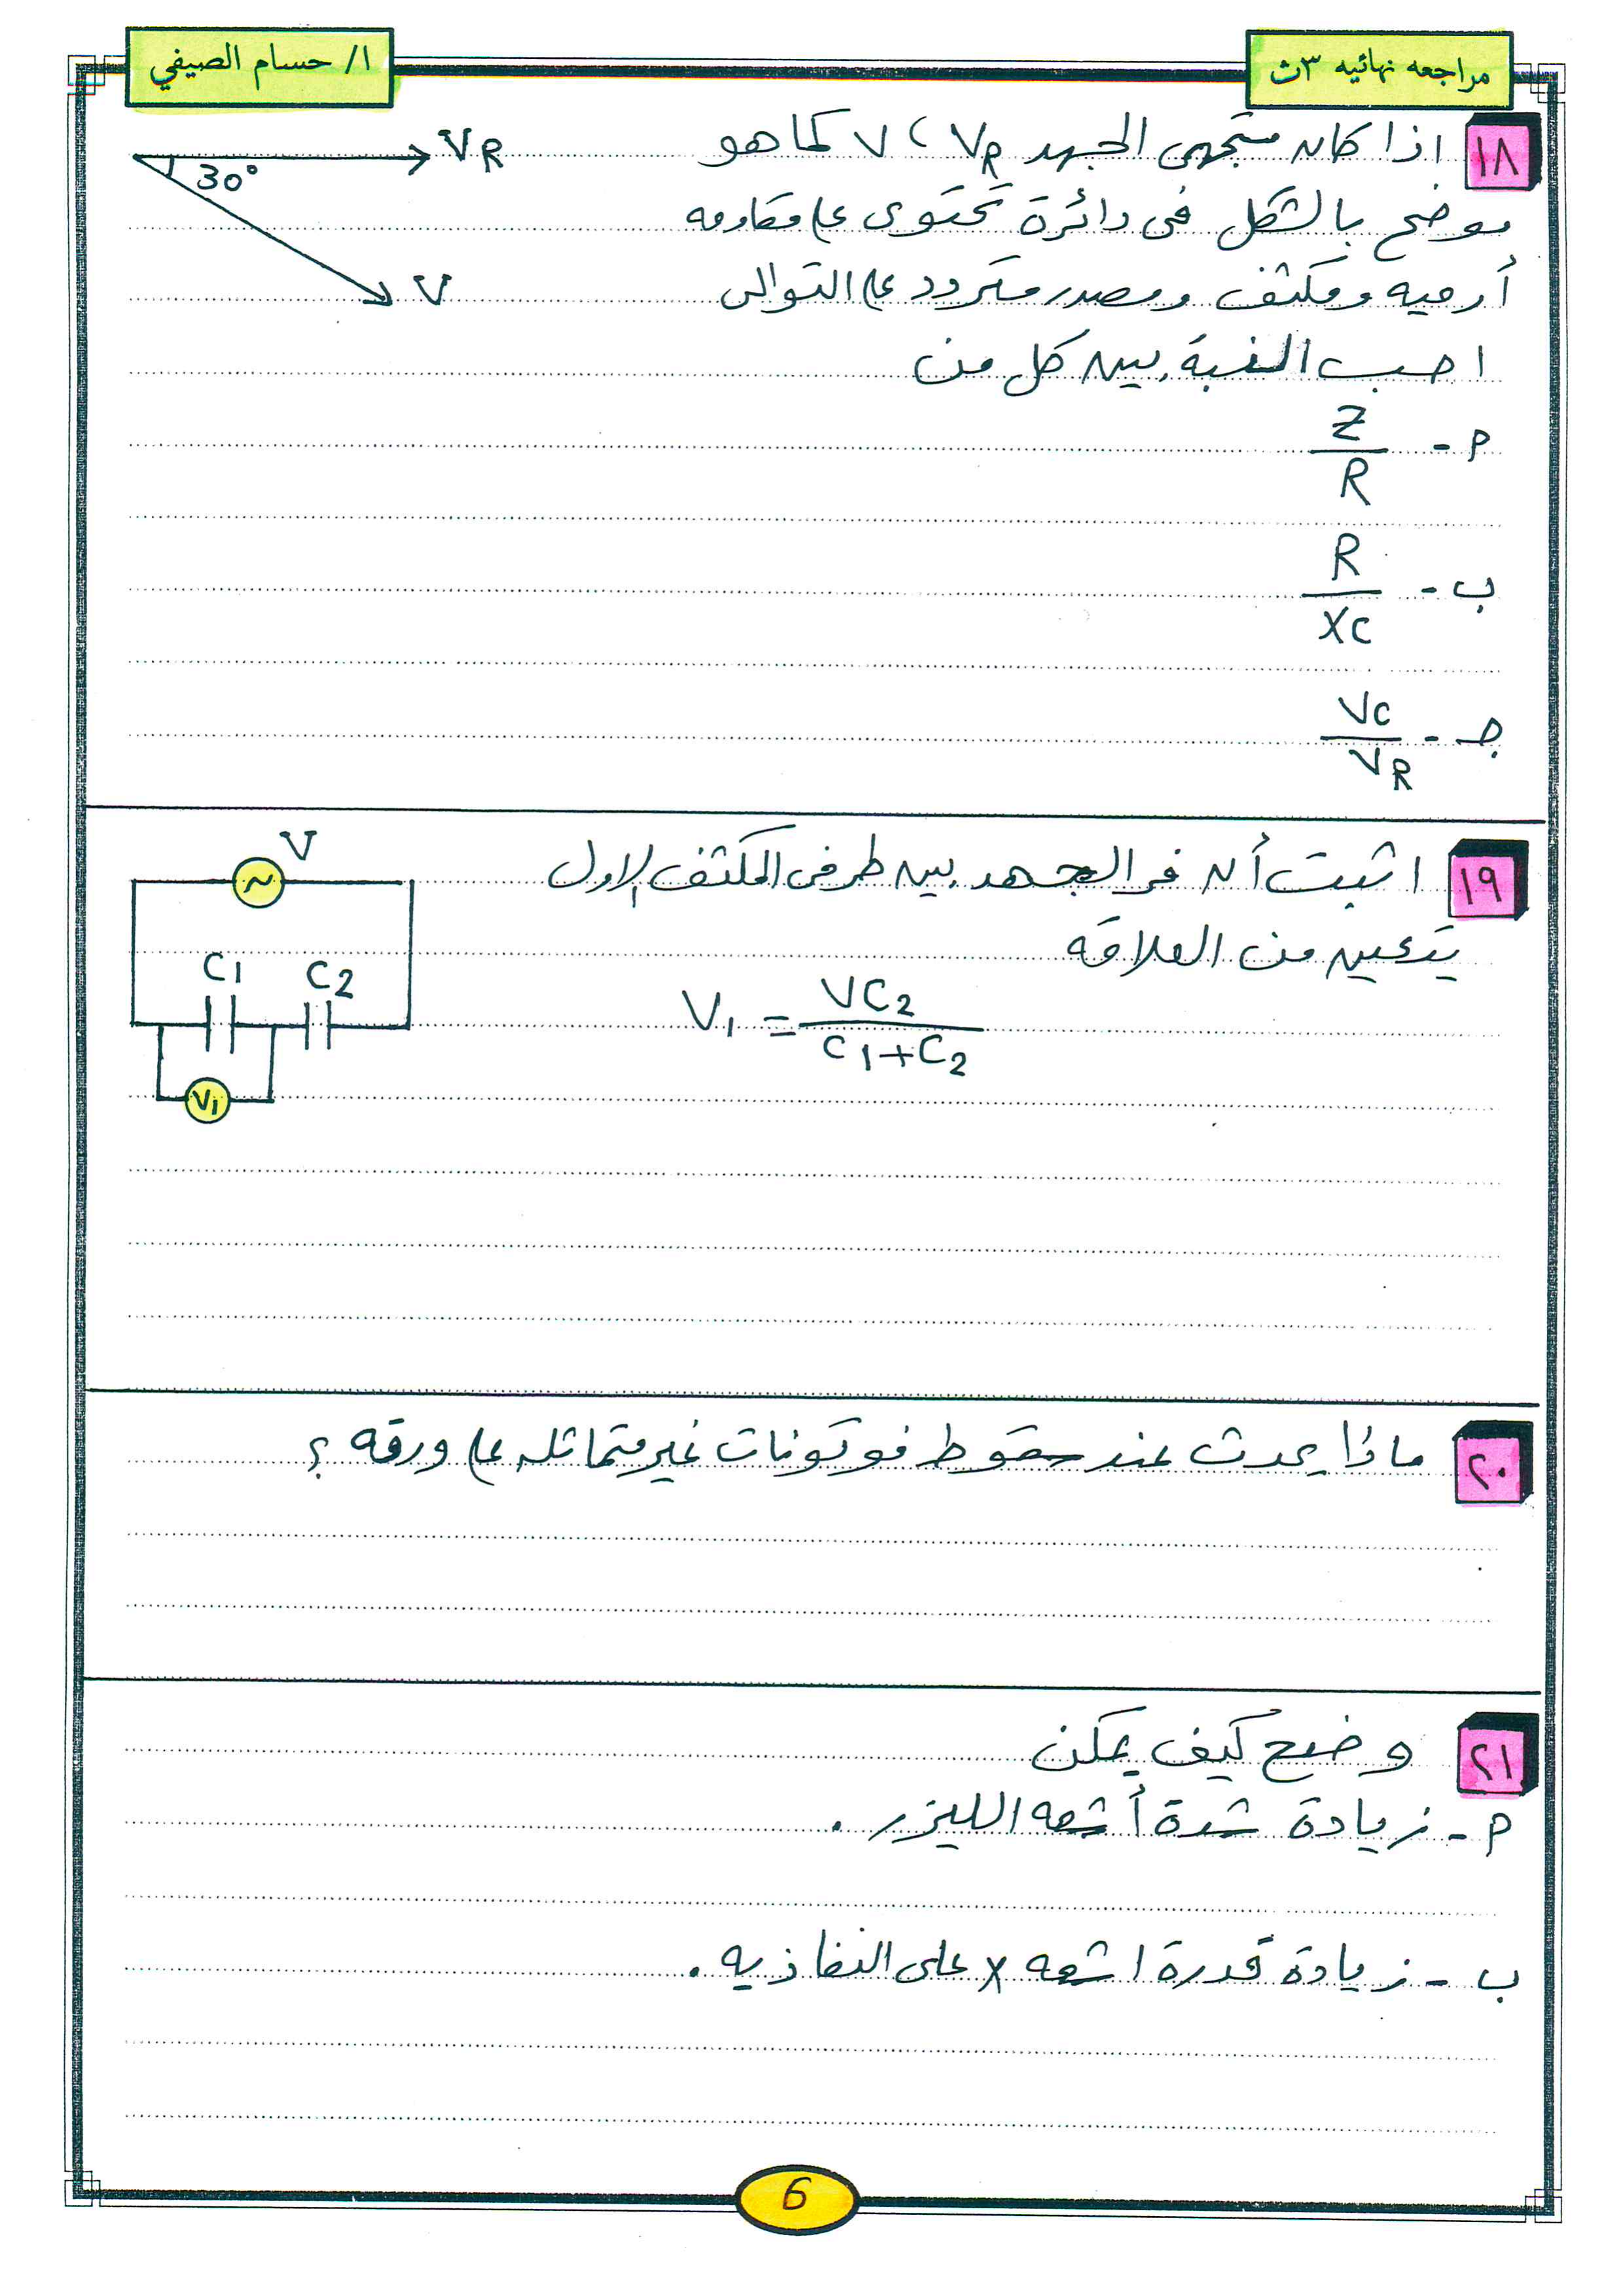 مراجعه نهائيه ٣ث
ا/ حسام الصيفي
١٨ اذا كان متجهى الجهد VR ، V كما هو
موضح بالشكل فى دائرة تحتوى على مقاومه
أوميه ومكثف ومصدر متردد على التوالى
احسب النسبة بين كل من
VR
30°
V
م - Z / R
ب - R / XC
جـ - VC / VR
١٩ اثبت أن فرق الجهد بين طرفى المكثف الاول
يتعين من العلاقه
V1 = VC2 / C1+C2
V
C1 C2
V1
٢٠ ماذا يحدث عند سقوط فوتونات غير متماثله على ورقه ؟
٢١ وضح كيف يمكن
م - زيادة شدة أشعه الليزر .
ب - زيادة قدرة اشعه X على النفاذيه .
6